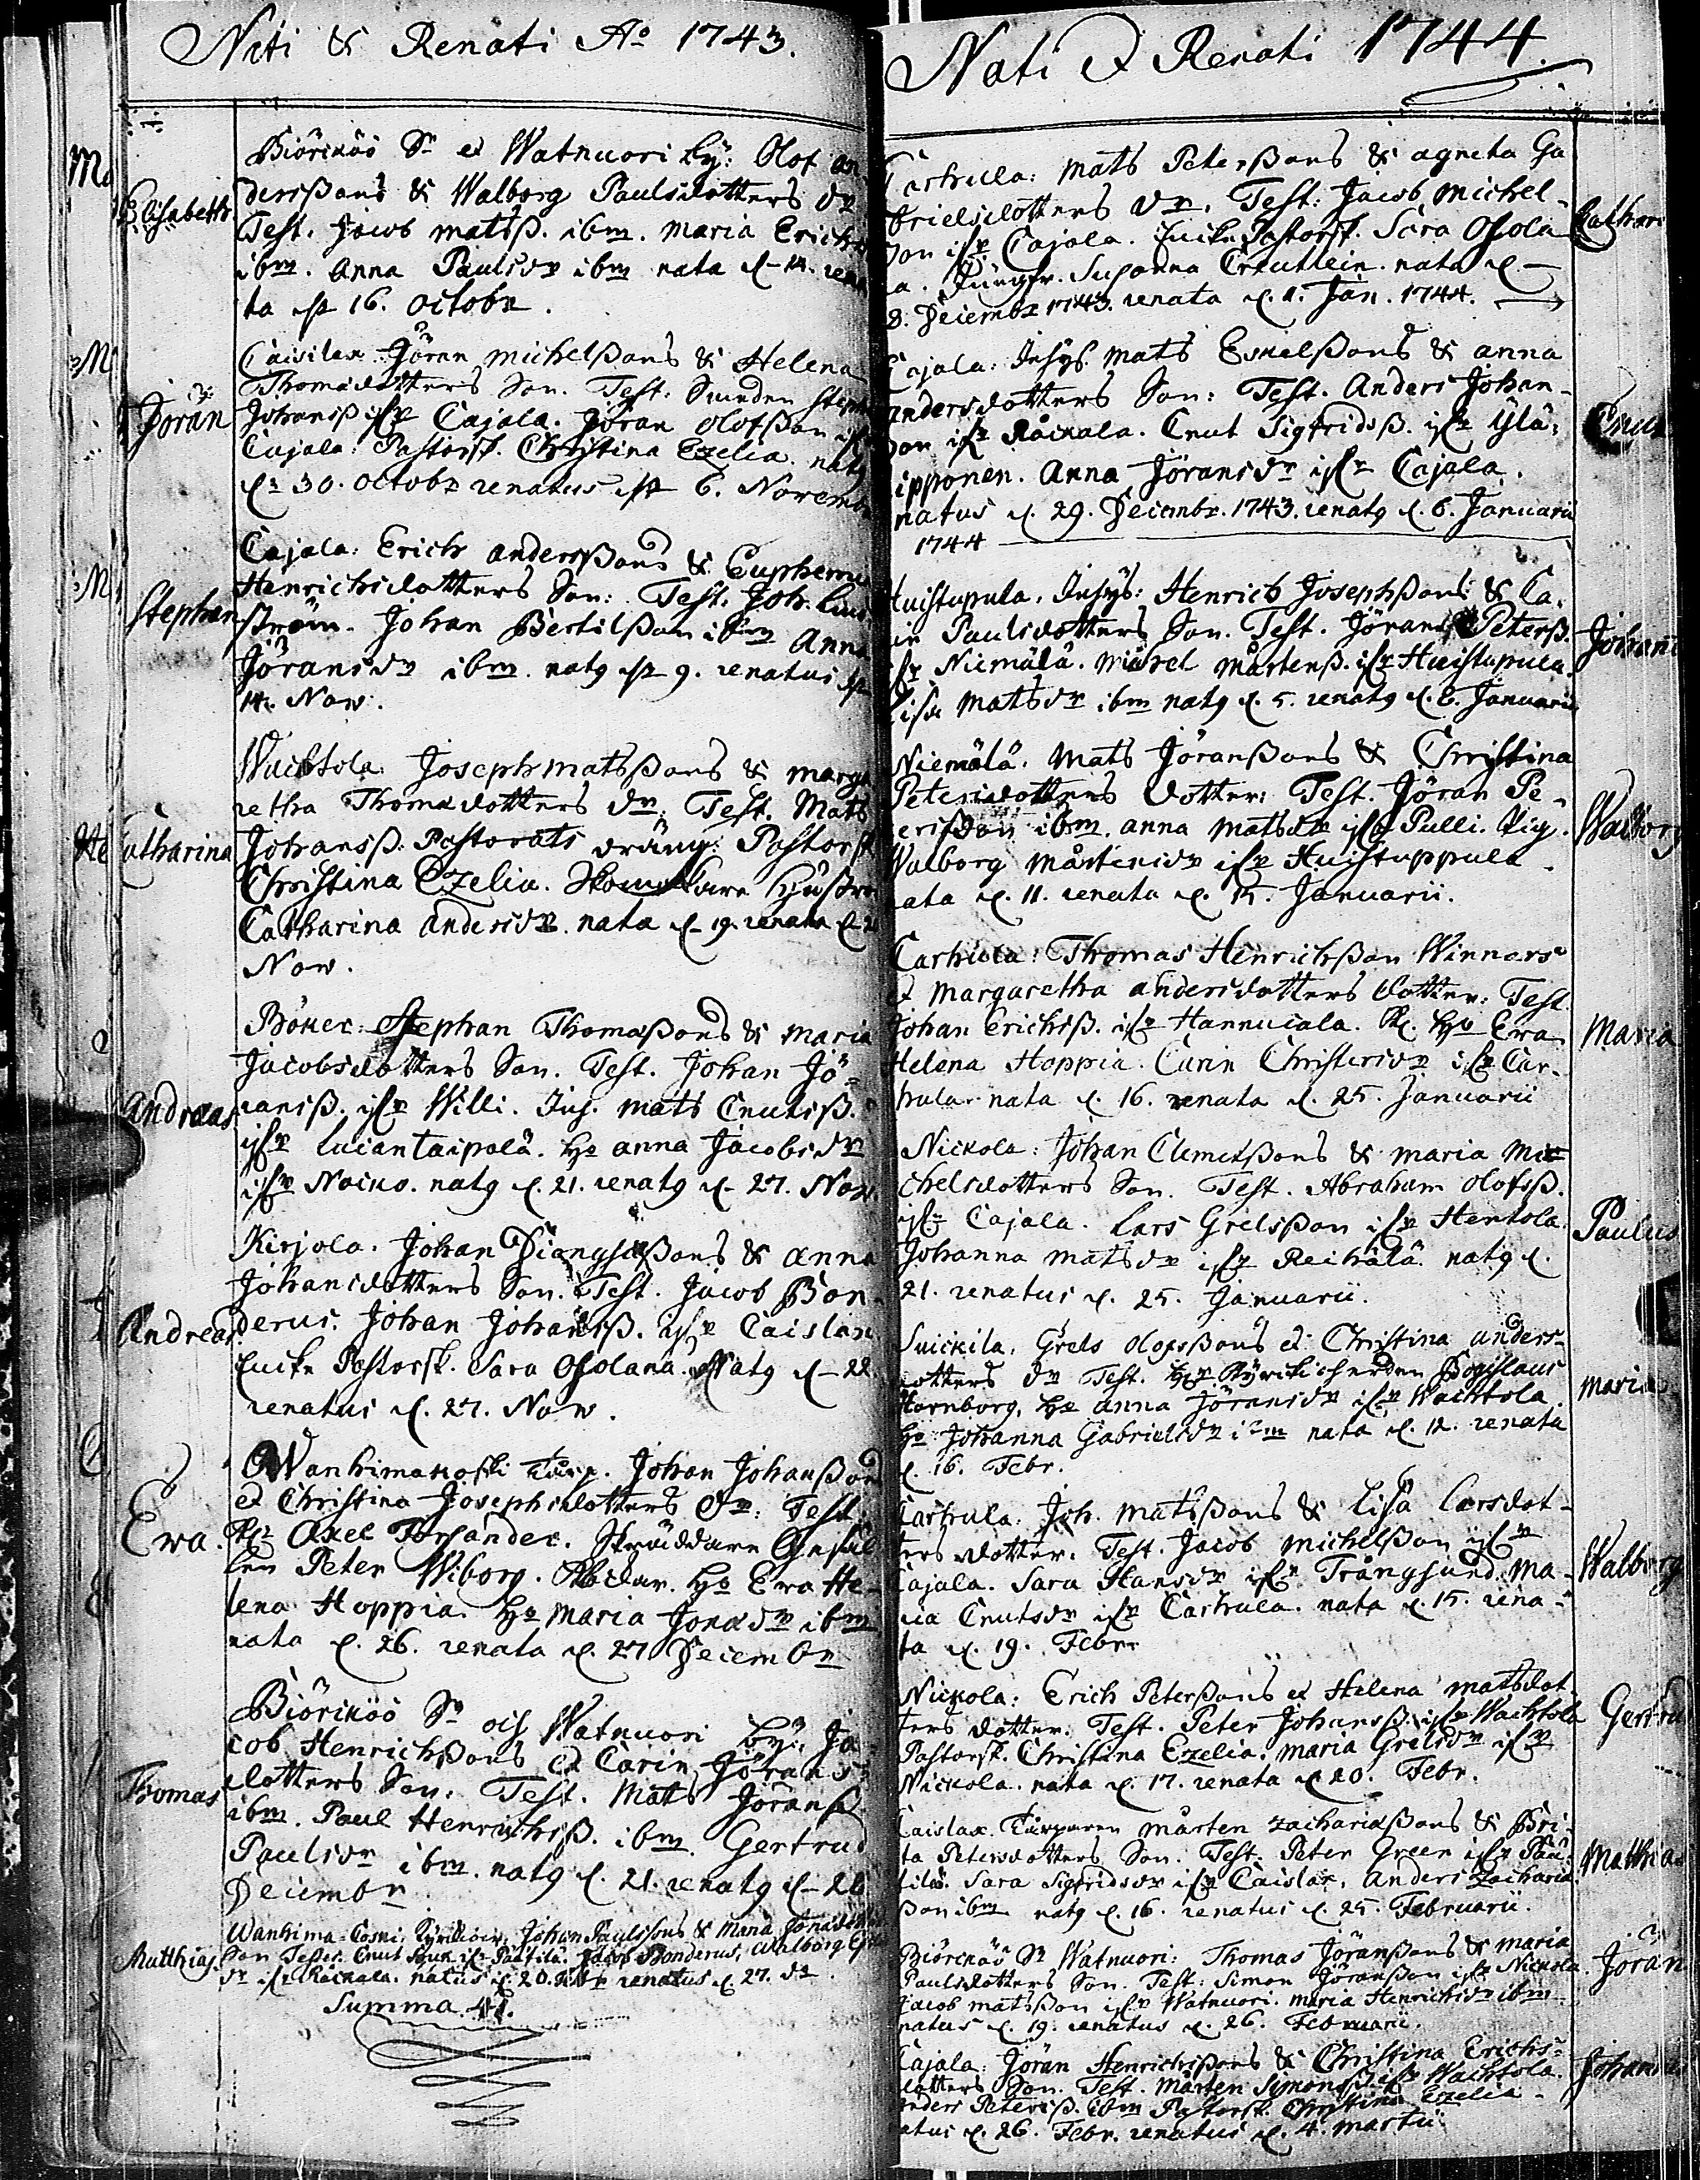 Nati & Renati Ao 1743.
Elisabeth
Biörköö Sn et Watnuori by: Olof an
derssons & Walborg Paulsdotters dr
Test. Jacob matsß. ibm. Maria Erichs
ibm. Anna Paulsdr ibm nata d. 14. rena
ta d. 16. Octobr.
Jöran
Caislax Jöran michelßons & Helena
Thomædotters Son. Test. Steph
Johansß ifr Cajala. Jöran Olofßon ifr
Cajala. Pastorsk. Christina Ezelia. natq
d. 30. Octobr renatus d. 6. Novemb
Stephan
Cajala: Erich anderßons & Euphemia
Henrichsdotters Son: Test. Joh.
ström. Johan Bertilßon ibm Anna
Jöransdr ibm. natq d. 9. renatus d.
14. Nov.
Catharina
Wachtola Joseph matsßons & marga
retha Thomædotters dr. Test. Mats
Johansß. Pastorats dräng. Pastorsk
Christina Ezelia. Skomakare hustro
Catharina Andersdr. nata d. 19. renata d. 2
Nov.
Andreas
Stephan Thomæßons & maria
Jacobsdotters Son. Test. Johan Jö-
ransß. ifr Willi. Inh. mats Cnutsß.
ifr Luciantaipala. Ho anna Jacobsdr
ifr natq d. 21. renatq d. 27. Nov
Andreas
Kirjola. Johan Dionysiißons & anna
Johansdotters Son. Test. Jacob Bon-
derus. Johan Johansß. ifr Caislax
Pastorsk. Sara Osolana. Natq d. 22
renatus d. 27. Nov.
Ewa.
Wanhimakoski Johan Johanßons
et Christina Josephsdotters dr: Test.
Axel Forsander. Skräddare
Peter Wiborg. Ho Ewa He-
lena Hoppia. Ho Maria Jonædr ibm
nata d. 26. renata d. 27 Decembr
Thomas
Biörköö Sn och Watnuori by: Ja
cob Henrichßons et Carin Jörans-
dotters Son. Test. Mats Jöranß
ibm. Paul Henrichsß. ibm. Gertrud
Paulsdr ibm. natq d. 21. renatq d. 26
Decembr
Matthias.
Wanhima-Coski Johan Paulssons & Maria Jonædott
Son Testes. Cnut ifr Pättilä. Jacob Bonderus, Walborg
dr ifr Räckala. natus d. 20. renatus d. 27. dr.
Summa. 41.
Nati & Renati 1744.
Carhula: Mats Peterßons & agneta Ga
brielsdotters dr. Test. Jacob michel-
son ifr Cajala. Pastorsk. Sara Osola
na. Jungfr. Susanna Creutlein. nata d.
8. Decembr 1743. renata d. 1. Jan. 1744.
Cathari
Cajala: Inhys. Mats Eskelßons & anna
andersdotters Son: Test. Anders Johan-
son ifr Råckala. Cnut Sigfridsß. ifr Ylä-
ipponen. Anna Jöransdr ifr Cajala.
natus d. 29. Decembr. 1743. renatq d. 6. Januarii
1744
Cnut
Huistupula. Inhys: Henrich Josephßons & Ca-
rin Paulsdotters Son. Test. Jöran Petersß.
ifr Niemälä. michel mårtensß. ifr Huistupula.
Lisa Matsdr ibm natq d. 5. renatq d. 6. Januarii
Johan
Niemälä. Mats Jöranßons & Christina
Petersdotters dotter: Test. Jöran Pe-
terßon ibm. anna matsdr ifr Pulli. Pig.
Walborg mårtensdr ifr Huistuppula
nata d. 11. renata d. 15. Januarii.
Walborg
Carhula: Thomas Henrichßon Winnars
et margaretha andersdotters dotter: Test.
Johan Erichsß. ifr Hannucala. Ho Ewa
Helena Hoppia. Carin Christersdr ifr Car-
hula. nata d. 16. renata d. 25. Januarii
Maria
Nickola: Johan Clemetßons & maria Mi-
chelsdotters Son. Test. Abraham Olofsß.
ifr Cajala. Lars Grelsßon ifr Hentola.
Johanna matsdr ifr Reikälä. natq d.
21. renatus d. 25. Januarii.
Paulus
Suickila. Grels Olofsßons et Christina anders-
dotters dr Test. Kyrckioherden Bogislaus
Hornborg. Ho anna Jöransdr ifr Wachtola.
Ho Johanna Gabrielsdr ibm nata d. 12. renata
d. 16. Febr.
Maria
Carhula. Joh. matsßons & Lisa Larsdot-
ters dotter. Test. Jacob michelßon ifr
Cajala. Sara Hansdr ifr Trångsund. Ma-
ria Cnutsdr ifr Carhula. nata d. 15. rena-
ta d. 19. Febr.
Walborg
Nickola: Erich Peterßons et Helena matsdot-
ters dotter. Test. Peter Johansß. ifr Wachtola
Pastorsk. Christina Ezelia. Maria Grelsdr ifr
Nickola. nata d. 17. renata d. 20. Febr.
Gertrud
Caislax. mårten Zachariæßons & Bri-
ta Petersdotters Son. Test. Peter Green ifr Pät-
tilä. Sara Sigfridsdr ifr Caislax. Anders Zachariæ
ßon ibm natq d. 16. renatus d. 25. Februarii.
Matthias
Biörcköö Sn Watnuori: Thomas Jöranßons & maria
Paulsdotters Son. Test: Simon Jöranßon ifr Nickola.
Jacob matsßon ifr Watnuori. maria Henrichsdr ibm.
natus d. 19. renatus d. 26. Februarii.
Jöran
Cajala: Jöran Henrichsßons & Christina Erichs-
dotters Son. Test. Mårten Simonsß. ifr Wachtola.
anders Petersß. ibm Pastorsk. Christina Ezelia.
natus d. 26. Febr. renatus d. 4. martii
Johan